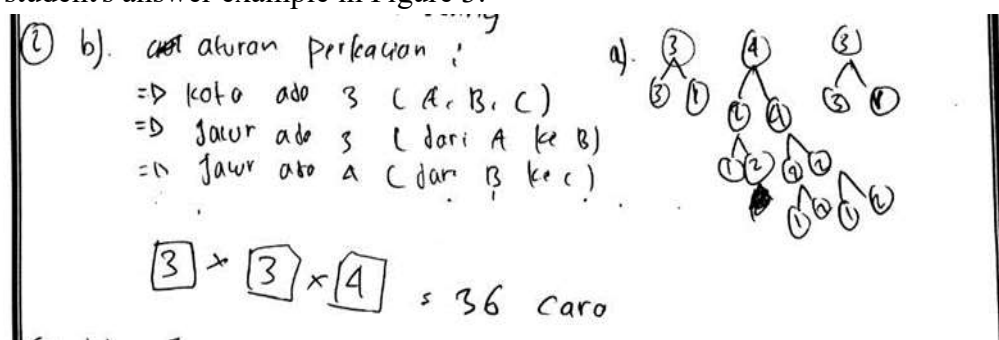 student's answer example in Figure 3.
2 b). aturan perkalian :
=> kota ada 3 ( A, B, C )
=> Jalur ada 3 ( dari A ke B)
=> Jalur ada 4 ( dari B ke C )
3 × 3 × 4 = 36 cara
a). 3 4 3
3 1 2 4 3 1
1 2 2 2
1 2 1 2